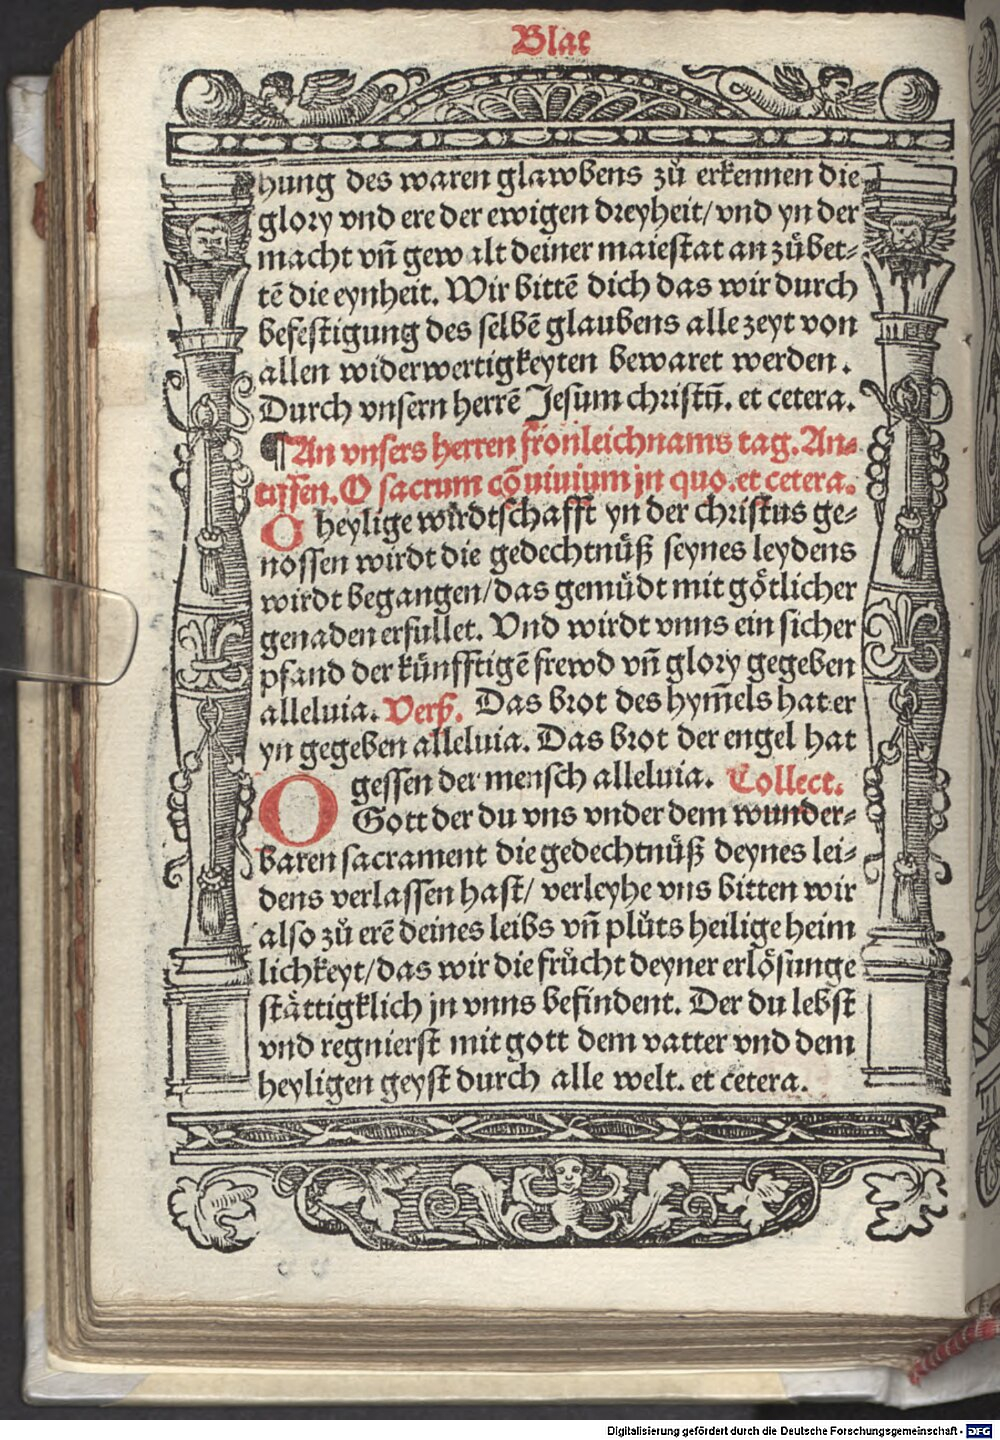 Blat
hung des waren glawbens zů erkennen die
glory vnd ere der ewigen dreyheit/ vnd yn der
macht vñ gewalt deiner maiestat an zůbet⸗
tē die eynheit. Wir bittē dich das wir durch
befestigung des selbē glaubens alle zeyt von
allen widerwertigkeyten bewaret werden.
Durch vnsern herrē Jesum christū. et cetera.
¶ An vnsers herren fronleichnams tag. An⸗
tiffen. O sacrum cōuiuium jn quo. et cetera.
O heylige wirdtschafft yn der christus ge⸗
nossen wirdt die gedechtnüß seynes leydens
wirdt begangen/ das gemüdt mit götlicher
genaden erfullet. Vnd wirdt vnns ein sicher
pfand der künfftigē frewd vñ glory gegeben
alleluia. Verß. Das brot des hym̄els hat er
yn gegeben alleluia. Das brot der engel hat
gessen der mensch alleluia. Collect.
O Gott der du vns vnder dem wunder⸗
baren sacrament die gedechtnüß deynes lei⸗
dens verlassen hast/ verleyhe vns bitten wir
also zů erē deines leibs vñ plůts heilige heim
lichkeyt/ das wir die frůcht deyner erlösunge
stättigklich jn vnns befindent. Der du lebst
vnd regnierst mit gott dem vatter vnd dem
heyligen geyst durch alle welt. et cetera.
Digitalisierung gefördert durch die Deutsche Forschungsgemeinschaft - DFG